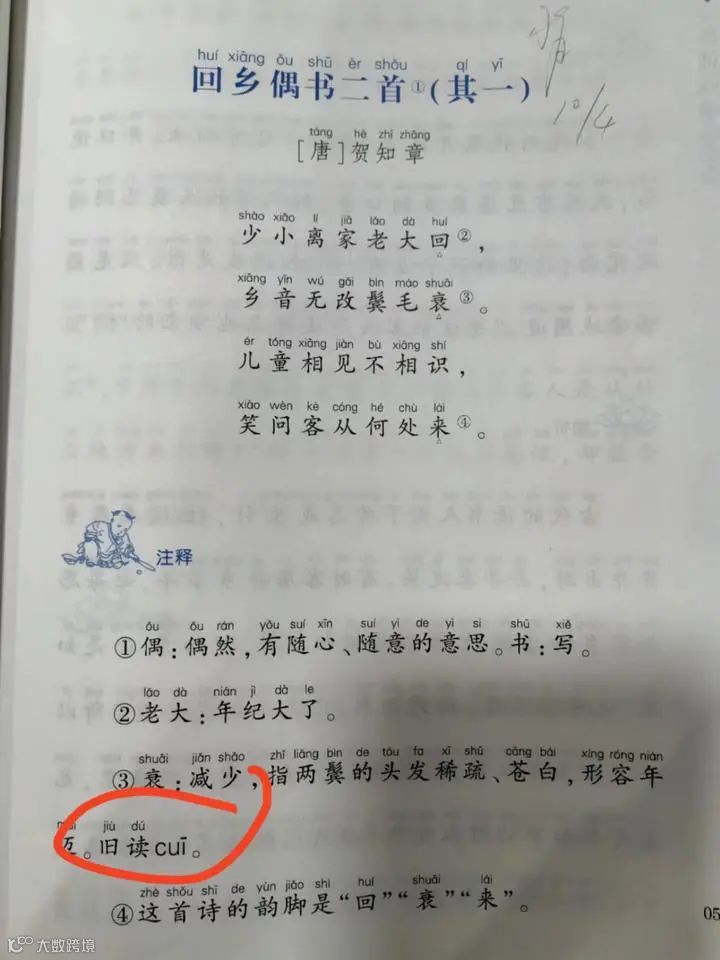 huí xiāng ǒu shū èr shǒu qí yī
回乡偶书二首①(其一)
10/4
táng hè zhī zhāng
[唐]贺知章
shào xiǎo lí jiā lǎo dà huí
少小离家老大回②，
xiāng yīn wú gǎi bìn máo shuāi
乡音无改鬓毛衰③。
ér tóng xiāng jiàn bù xiāng shí
儿童相见不相识，
xiào wèn kè cóng hé chù lái
笑问客从何处来④。
注释
ǒu ǒu rán yǒu suí xīn suí yì de yì si shū xiě
①偶：偶然，有随心、随意的意思。书：写。
lǎo dà nián jì dà le
②老大：年纪大了。
shuāi jiǎn shǎo zhǐ liǎng bìn de tóu fa xī shū cāng bái xíng róng nián
③衰：减少，指两鬓的头发稀疏、苍白，形容年
mài jiù dú
迈。旧读cuī。
zhè shǒu shī de yùn jiǎo shì huí shuāi lái
④这首诗的韵脚是“回”“衰”“来”。
05
大数跨境